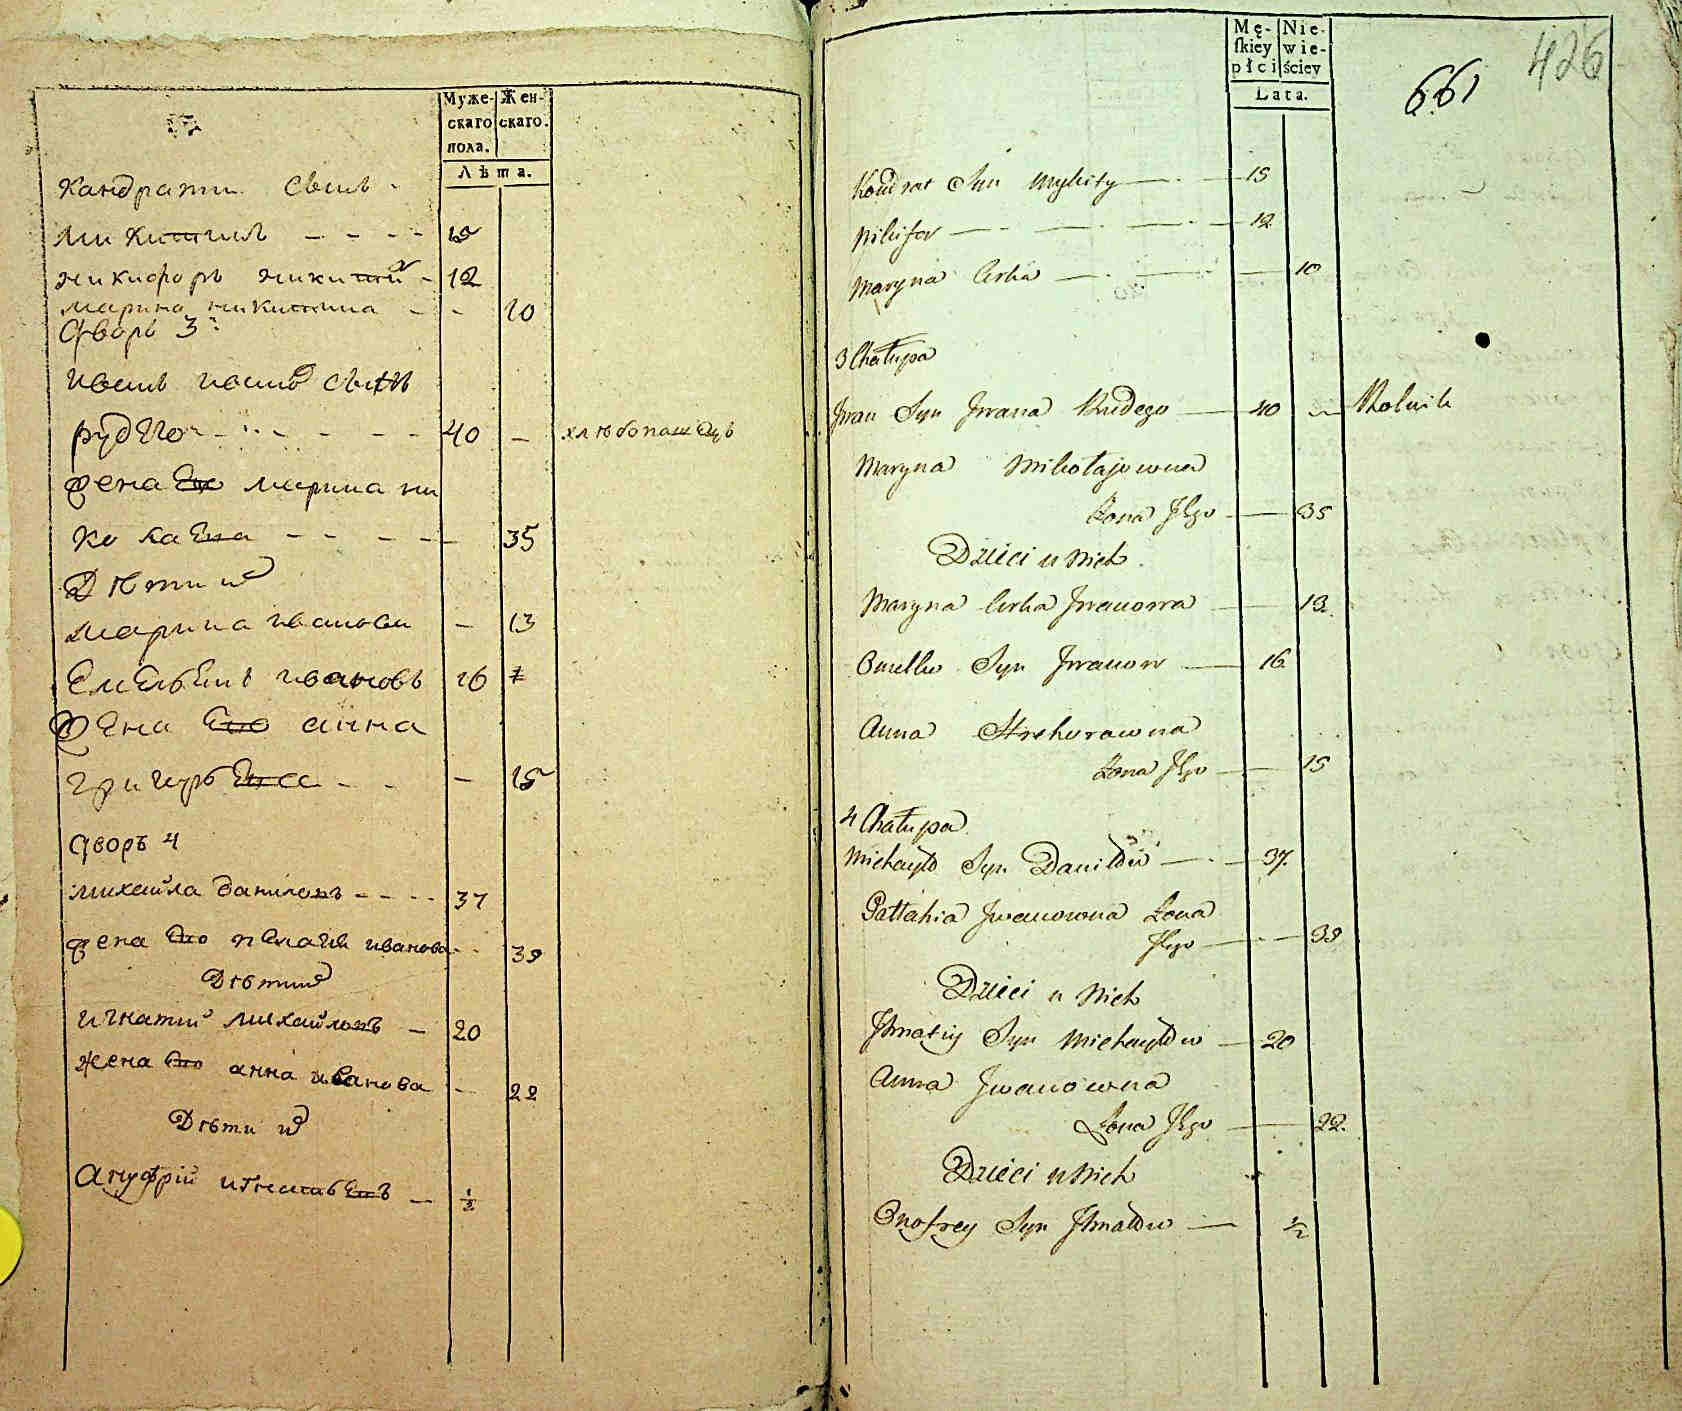 Муже-
скаго
пола.
Жен-
скаго.
Лѣта.
Кандрати сынъ
микитинъ - - - - 15
никифоръ никитинъ - 12
марина никитина - - 10
дворъ 3й
иванъ ивановъ сынъ
рудого - - - - - 40 - хлѣбопашецъ
жена Его марина ни
колаЕва - - - - - 35
Дѣти их
марина иванова - 13
ЕмЕльЕнъ ивановъ 16
жена Его анна
григорьЕва - - - 15
дворъ 4
михайла даниловъ - - - - 37
жена Его пЕлагЕя иванова - - 39
Дѣти их
игнатий михайловъ - 20
жена Его анна иванова - 22
Дѣти их
Ануфрій игнатьЕвъ - 1/2
Mę-
ſkiey
płci
Nie-
wie-
ściey
Lata.
426
661
Kondrat Syn Mykity — 15
Nikifor — 12
Maryna Corka — 10
3 Chałupa
Jwan Syn Jwana Rudego — 40 — Rolnik
Maryna Mikołajowna
Żona Jego — 35
Dzieci u Nich
Maryna Corka Jwanowa — 13
Omelko Syn Jwanow — 16
Anna Hrehorowna
Żona Jego — 15
4 Chałupa
Michayło Syn Daniłów — 37
Pałłahia Jwanowna Żona
Jego — 39
Dzieci u Nich
Jhnatiy Syn Michayłow — 20
Anna Jwanowna
Żona Jego — 22
Dzieci u Nich
Onofrey Syn Jhnatów — 1/2